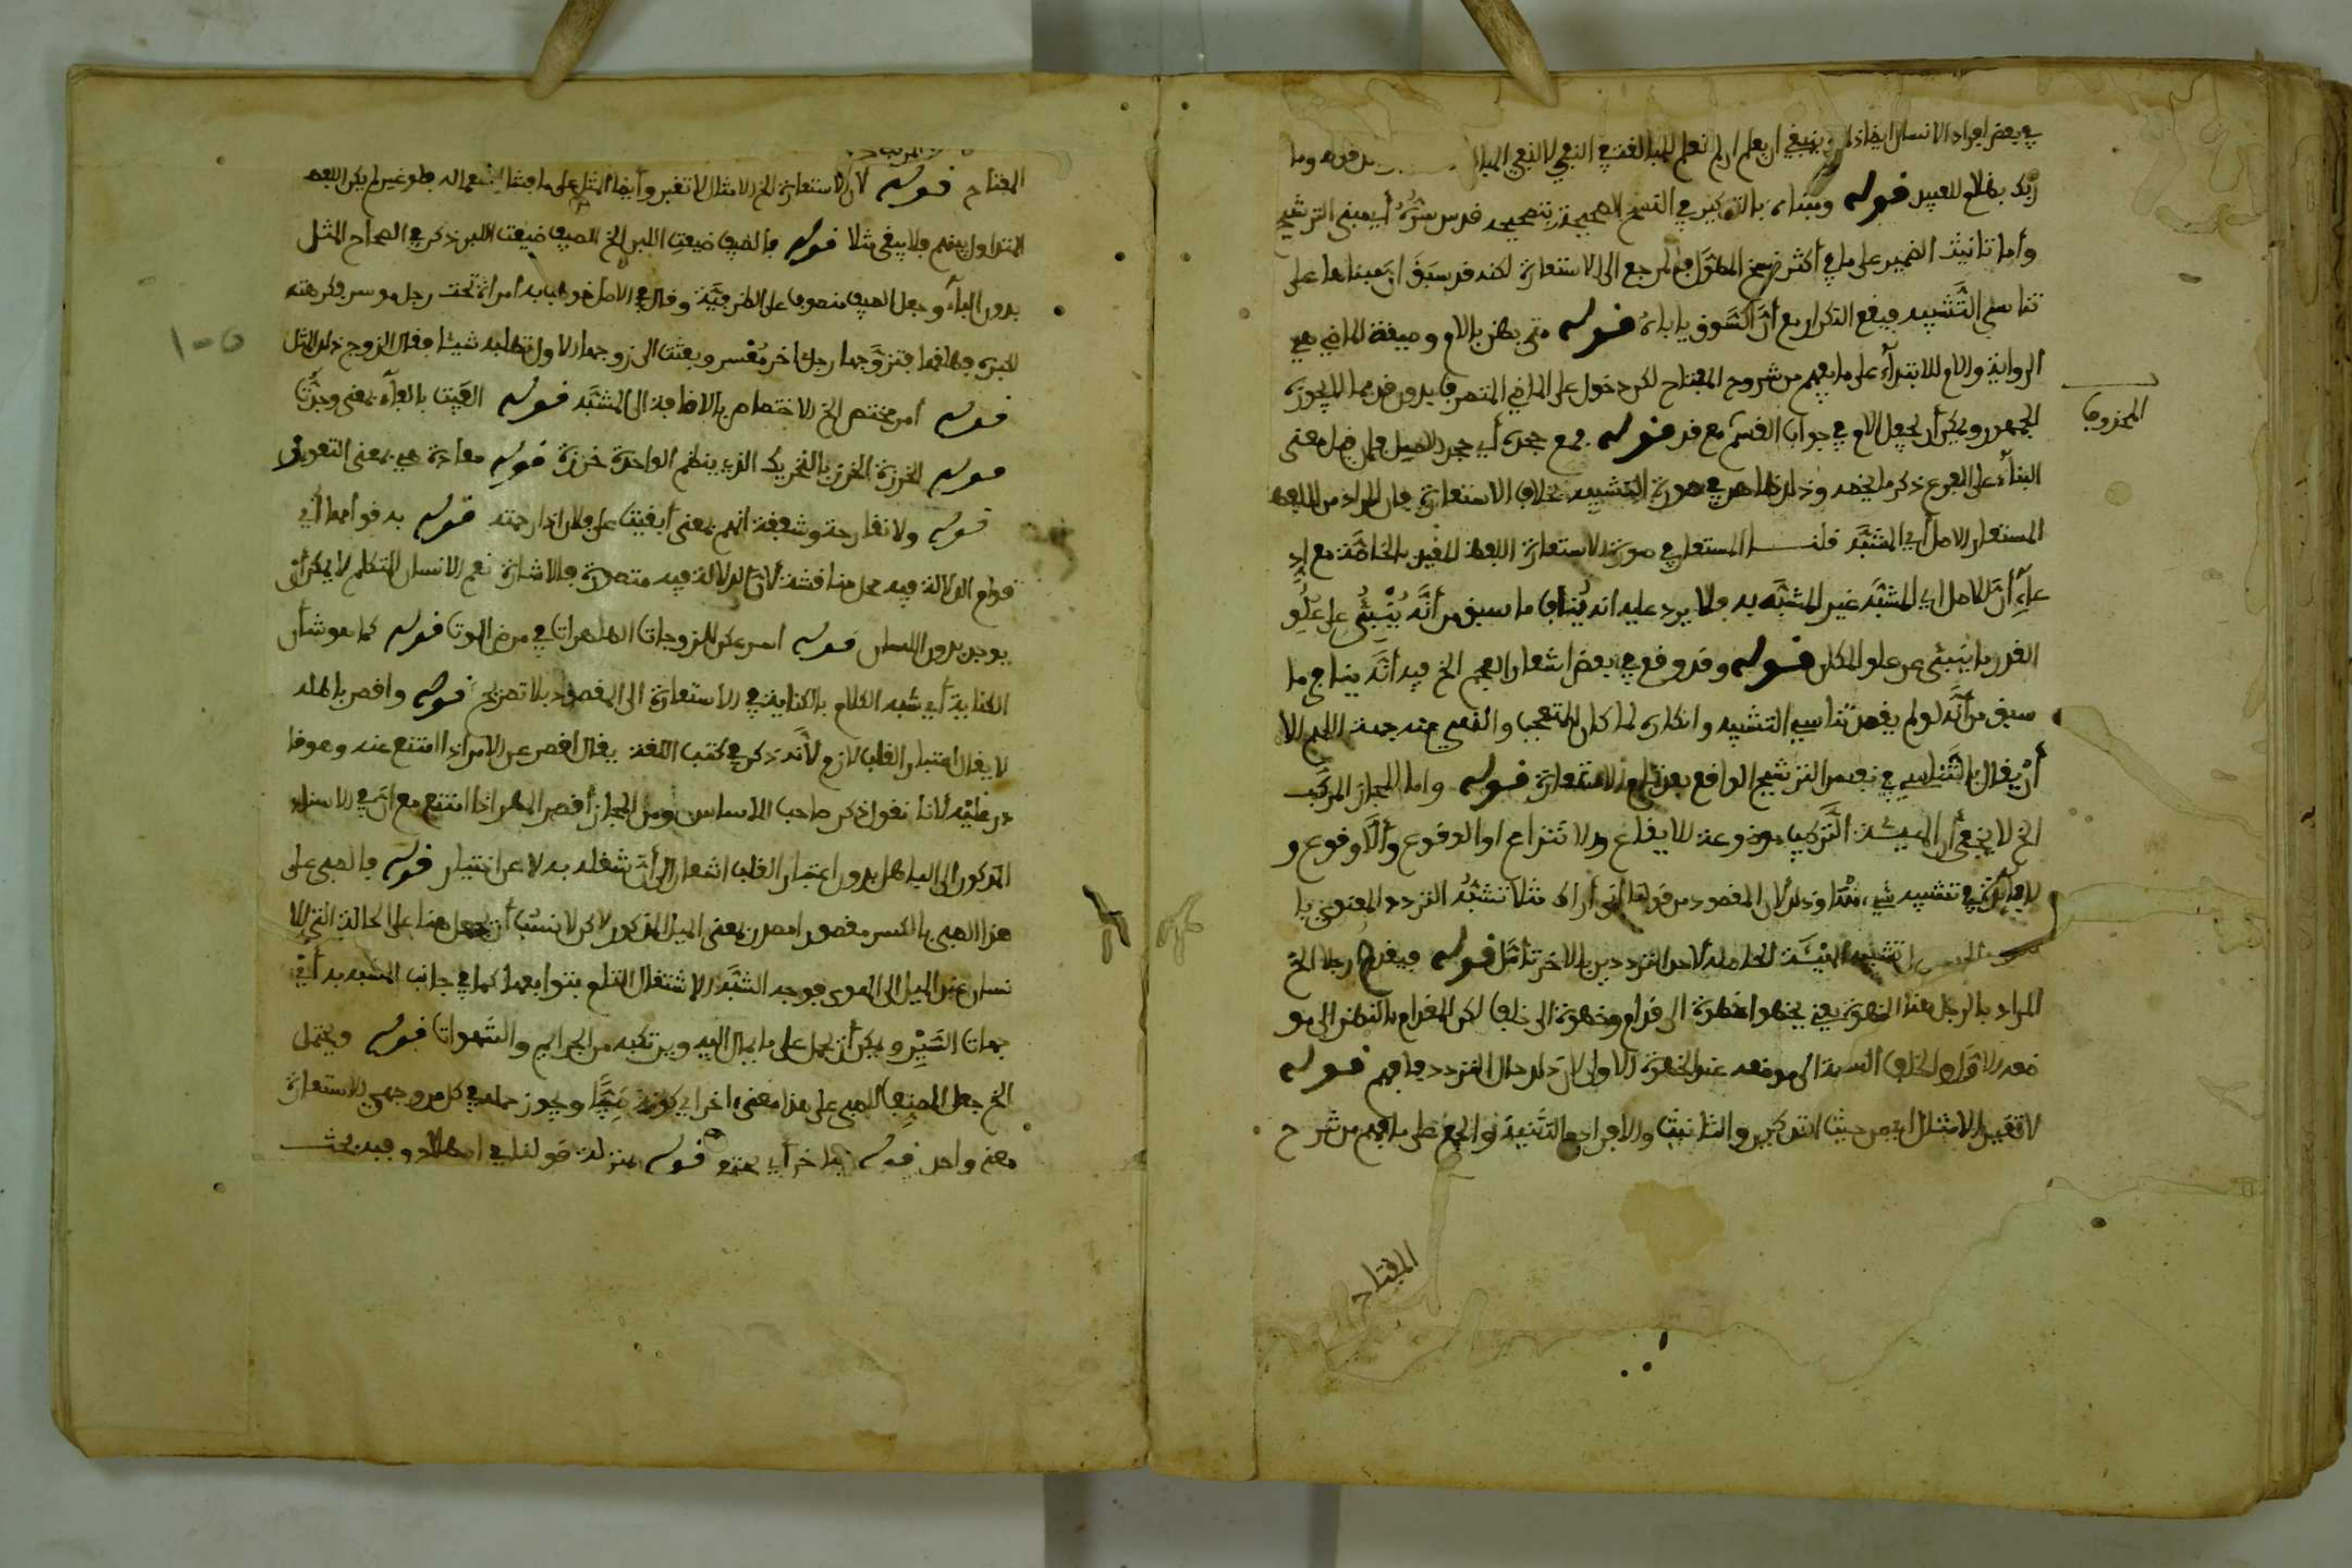 في بعض افراد الانسان ايضا وينبغي ان يعلم ان لم نعلم للمبالغة في النفي لا لنفي
ربك بظلام للعبيد قوله ومبناه بالتذكير في النسخ الصحيحة بتصحيحه قدس سره أي مبنى الترشيح
وأما تانيث الضمير على ما في أكثر نسخ المطول فالمرجع الى الاستعارة لكنه قد سبق ان مبناها على
تناسي التشبيه فيقع التكرار مع أن السوق ياباه قوله متى يظن بالام وصيغة الماضي هي
الرواية والام للابتداء على ما يفهم من شروح المفتاح لكن دخول على الماضي المتصرف بدون قد مما لا يجوزه
الجمهور ويمكن أن يجعل الام في جواب القسم مع قد المحذوف
قوله مع جحده أي جحد الاصل فان قيل معنى
البناء على الفرع ذكر ما يخصه وذلك ظاهر في صورة التشبيه بخلاف الاستعارة فان المراد من اللفظ
المستعار الاصل أي المشبه قلنا المستعار في صورة الاستعارة اللفظ للغير بالخاصة مع اد
علاء أن الاصل اي المشبه غير المشبه به فلا يرد عليه انه ينافي ما سبق من أنه يبتنى على علو
القدر ما يبتنى عن علو المكان قوله وقد وقع في بعض اشعار العجم الخ فيه أنه ينافي ما
سبق من أنه لو لم يقصد تناسي التشبيه وانكاره لما كان للتعجب والنهي عنه جهة اللهم الا
أن يقال بالتناسي في نفس الترشيح الواقع بعد تمام الاستعارة قوله واما المجاز المركب
الخ لا يخفى أن الهيئة التركيب موضوعة للايقاع والانتزاع او الوقوع وألا وقوع و
لا فائدة في تشبيه شيء منها وذلك لان المقصود من قولنا أني أراك مثلا تشبه التردد المعنوي با
تشبيه الهيئة الحاصلة لاحد الترددين بالاخر تأمل قوله فيقدم رجلا الخ
المراد بالرجل هنا الخطوة يعني يخطو خطوة الى قدام وخطوة الى خلف لكن القدام بالنظر الى مو
ضعه الاول والخلف بالنسبة الى موضعه عند الخطوة الاولى لان ذلك حال المتردد فافهم قوله
لا تغير الامثال اي من حيث التذكير والتانيث والافراد والتثنية والجمع على ما فهم من شرح
المفتاح
المفتاح قوله لان الاستعارة الخ الامثال لا تغير وأيضا المثل على ما فشا استعماله فلو غير لم يكن اللفظ
المتداول بينهم فلا يبقى مثلا قوله بالصيف ضيعت اللبن الخ الصيف ضيعت اللبن ذكر في الصحاح المثل
بدون الباء وجعل الصيف منصوبا على الظرفية وقال في الاصل خوطب به امراة تحت رجل موسر فكرهته
لكبره فطلقها فتزوجها رجل اخر معسر وبعثت الى زوجها الاول تطلبه شيئا فقال الزوج ذلك المثل
قوله أمر مختص الخ الاختصاص بالاضافة الى المشبه قوله الفيت بالفاء بمعنى وجدت
قوله الخرزة الخرز بالتحريك الذي ينظم الواحدة خرزة قوله معاذة هي بمعنى التعويذ
قوله ولا تفا رحمة وشفقة انهم بمعنى أبقيت على فلان اذا رحمته قوله به قوامها أي
قوام الدلالة فيه محل مناقشة لان الدلالة فيه متصورة بالاشارة نعم الانسان المتكلم لا يمكن أن
يوجد بدون اللسان قوله اسرعكن للزوجات الطاهرات في مرض الموت قوله كما هو شأن
الكناية أي شبه الكلام بالكناية في الاستعارة الى المقصود بلا تصريح قوله واقصر باطله
لا يقال اعتبار القلب لازم لأنه ذكر في كتب اللغة يقال اقصر عن الامر اذا امتنع عنه وهو قا
در عليه لانا نقول ذكر صاحب الاساس ومن المجاز أقصر المطر اذا امتنع مع ان في الاسناد
المذكور الى الباطل بدون اعتبار القلب اشعار الى أن شغله به لا عن اختيار قوله فالصبى على
هذا الصبى بالكسر مقصورا مصدر بمعنى الميل المذكور لاكن لا نسب أن يحمل هنا على الحالة التي للا
نسان عند الميل الى الهوى فوجه الشبه الاشتغال التام بتوابعها كما في جانب المشبه به أي
جهات السير ويمكن أن يحمل على ما يمال اليه ويرتكبه من الجرايم والشهوات قوله ويحتمل
الخ جعل المصنف الصبى على هذا معنى اخر اي كونه صبيا ويجوز حمله في كل من وجهي الاستعارة
معنى واحد قوله قوله بمنزلة قولنا في اصطلا وفيه بحث